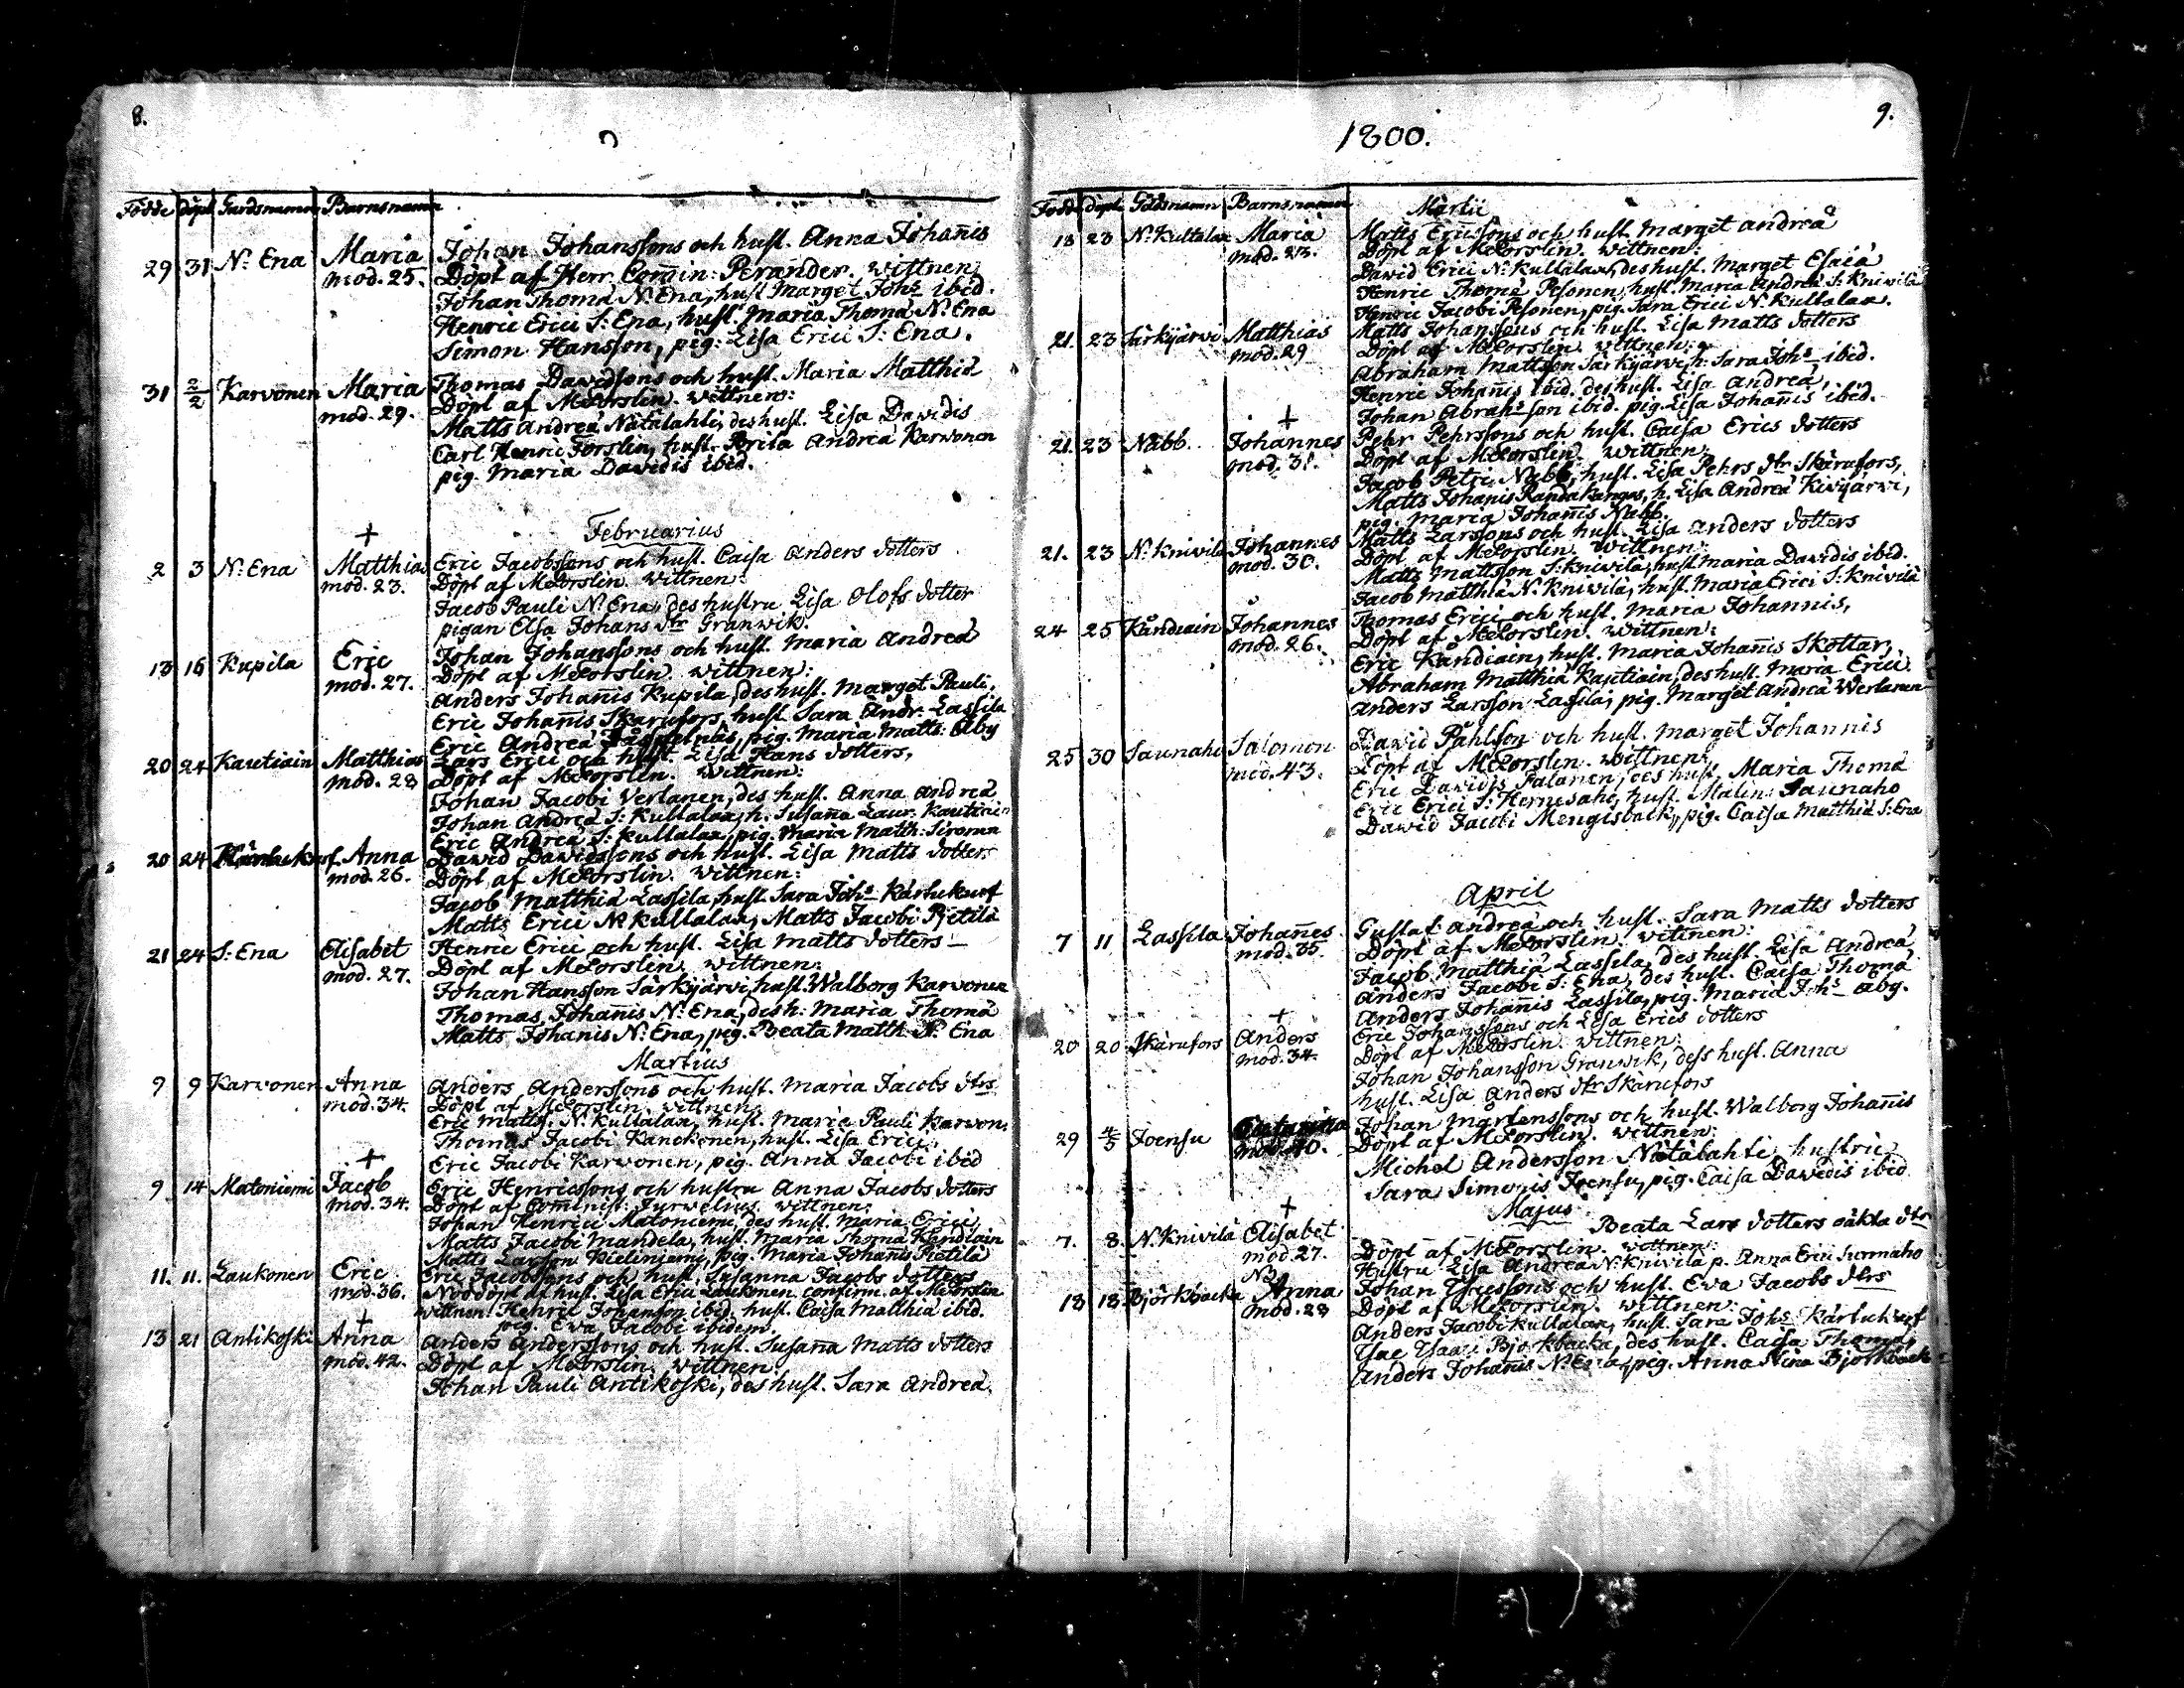 8.
Födde döpt Gårdsnamn Barnsnamn
29 31 N: Ena Maria Johan Johanssons och hust. Anna Johan̄is
mod. 25. Döpt af Herr Com̄in: Perander. Wittnen
Johan Thomæ N: Ena, hust Marget Johs ibid.
Henric Erici S: Ena, hust. Maria Thomæ N: Ena
Simon Hansson, pig: Lisa Erici S: Ena.
31 2/2 Karvonen Maria Thomas Davidssons och hust. Maria Matthiæ
mod. 29. Döpt af M: Forslin. Wittnen:
Matts Andreæ Nätälahti, des hust. Lisa Davidis
Carl Henric Forslin, hust. Brita Andreæ Karvonen
pig. Maria Davidis ibid.
Februarius
+
2 3 N: Ena Matthias Eric Jacobssons och hust. Caisa Anders dotters
mod. 23. Döpt af M: Forslin. Wittnen:
Jacob Pauli N: Ena, des hustru Lisa Olofs dotter
pigan Elsa Johans dtr Granwik.
13 16 Kupila Eric Johan Johanssons och hust. Maria Andreæ
mod. 27. Döpt af M: Forslin Wittnen:
Anders Johan̄is Kupila, des hust. Marget Pauli,
Eric Johan̄is Skarufors, hust. Sara Andr. Lassila
Eric Andreæ pig. Maria Matts: Åby
20 24 Kautiain Matthias Lars Erici och hust. Lisa Hans dotters,
mod. 28 Döpt af M: Forslin. Wittnen:
Johan Jacobi Verlanen, des hust. Anna Andreæ
Johan Andreæ S: Kullalax, h. Susan̄a Laur. Kautiain
Eric Andreæ S: Kullalax, pig. Maria Matth: Siroma
20 24 Anna David Davidssons och hust. Lisa Matts dotters
mod. 26. Döpt af M: Forslin. Wittnen:
Jacob Matthiæ Lassila, hust. Sara Johs Kärtukurf
Matts Erici N: Kullalax, Matts Jacobi Pietilä
21 24 S: Ena Elisabet Henric Erici och hust. Lisa Matts dotters
mod. 27. Döpt af M: Forslin. Wittnen:
Johan Hansson Särkijärvi, hust. Walborg Karvonen
Thomas Johan̄is N: Ena, des h: Maria Thomæ
Matts Johanis N: Ena, pig. Beata Matth. N: Ena
Martius
9 9 Karvonen Anna Anders Anderssons och hust. Maria Jacobs dtrs
mod. 34. Döpt af M: Forslin. Wittnen:
Eric Matts. N: Kullalax, hust. Maria Pauli Karvon.
Thomas Jacobi Kanckonen, hust. Lisa Erici.
+ Eric Jacobi Karvonen, pig. Anna Jacobi ibid
9 14 Matoniemi Jacob Eric Henricssons och hustru Anna Jacobs dotters
mod. 34. Döpt af Com̄inist. Wittnen:
Johan Henrici Matoniemi, des hust. Maria Erici,
Matts Jacobi Mandela, hust. Maria Thomæ Kändiain
Matts Larsson Kieliniemi, pig. Maria Johan̄is Pietilä
11. 11. Laukonen Eric Eric Jacobssons och hust. Susanna Jacobs dotters
mod. 36. Nöddöpt af hust. Lisa Erici Laukonen confirm. af M: Forslin
Wittnen: Henric Johansson ibid. hust. Caisa Matthiæ ibid.
pig. Eva Jacobi ibidem.
+
13 21 Antikoski Anna Anders Anderssons och hust. Susan̄a Matts dotters
mod. 42. Döpt af M: Forslin. Wittnen
Johan Pauli Antikoski, des hust. Sara Andreæ.
1800.
9.
Född döpt Gårdsnamn Barnsnamn Martii
18 23 N: Kullalax Maria Matts Ericssons och hust. Marget Andreæ
mod. 23. Döpt af M: Forslin. Wittnen:
David Erici N: Kullalax, des hust. Marget Esaiæ
Henric Thomæ Pesonen, hust. Maria Andreæ S: Knivilä
Henric Jacobi Pesonen, pig. Sara Erici N: Kullalax.
21. 23 Särkijärvi Matthias Matts Johanssons och hust. Lisa Matts dotters
mod. 29 Döpt af M: Forslin. Wittnen:
Abraham Mattsson Särkijärvi, h. Sara Johs ibid.
Henric Johan̄is ibid. des hust. Lisa Andreæ,
+ Johan Abrahsson ibid. pig. Lisa Johan̄is ibid.
21. 23 Nabb. Johannes Pehr Pehrssons och hust. Caisa Erics dotters
mod. 31. Döpt af M: Forslin. Wittnen:
Jacob Petri Nabb, hust. Lisa Pehrs dtr Skärufors,
Matts Johanis Randakangas, h. Lisa Andreæ Kivijärvi,
pig. Maria Johan̄is Nabb.
21. 23 N: Knivilä Johannes Matts Larssons och hust. Lisa Anders dotters
mod. 30. Döpt af M: Forslin. Wittnen:
Matts Mattsson S: Knivilä, hust Maria Davidis ibid.
Jacob Matthiæ N: Knivilä, hust. Maria Erici S: Knivilä
24 25 Kändiain Johannes Thomas Erici och hust. Maria Johannis,
mod. 26. Döpt af M: Forslin. Wittnen:
Eric Kändiain, hust. Maria Johan̄is Skottar,
Abraham Matthiæ Kautiain, des hust. Maria Erici
Anders Larsson Lassila, pig. Marget Andreæ Werlanen
25 30 Saunaho Salomon David Påhlson och hust. Marget Johannis
mod. 43. Döpt af M: Forslin. Wittnen:
Eric Davids. Palanen, des hust. Maria Thomæ
Eric Erici S: Hernesaho, hust. Malin: Saunaho
David Jacobi Mengisback, pig. Caisa Matthiæ S: Ena
April
7 11 Lassila Johan̄es Gustaf Andreæ och hust. Sara Matts dotters
mod. 35. Döpt af M: Forslin. Wittnen:
Jacob Matthiæ Lassila, des hust. Lisa Andreæ
Anders Jacobi S: Ena, des hust. Caisa Thomæ
Anders Johan̄is Lassila, pig. Maria Johs Åby.
+
20 20 Skärufors Anders Eric Johanssons och Lisa Erics dotters
mod. 34 Döpt af M: Forslin. Wittnen:
Johan Johansson Granwik, dess hust. Anna
hust. Lisa Anders dtr Skarufors
29 4/5 Joensu Johan Mårtenssons och hust. Walborg Johan̄is
mod. 40. Döpt af M: Forslin. Wittnen:
Michel Andersson Nätälahti, hustru
Sara Simonis Joensu, pig. Caisa Davidis ibid.
+ Majus
7. 8. N: Knivilä Elisabet Beata Lars dotters oäkta dtr
mod. 27. Döpt af M: Forslin. Wittnen:
Hustru Lisa Andreæ N: Knivilä p. Anna Erici Surmaho
18 18 Björkbacka Anna Johan Ericssons och hust. Eva Jacobs dtrs
mod. 28 Döpt af M: Forslin. Wittnen:
Anders Jacobi Kullalax, hust. Sara Johs Kärtukurf
Isac Isaaci Björkbacka, des hust. Caisa Thomæ,
Anders Johanis N: Ena, pig. Anna Stina Björkback